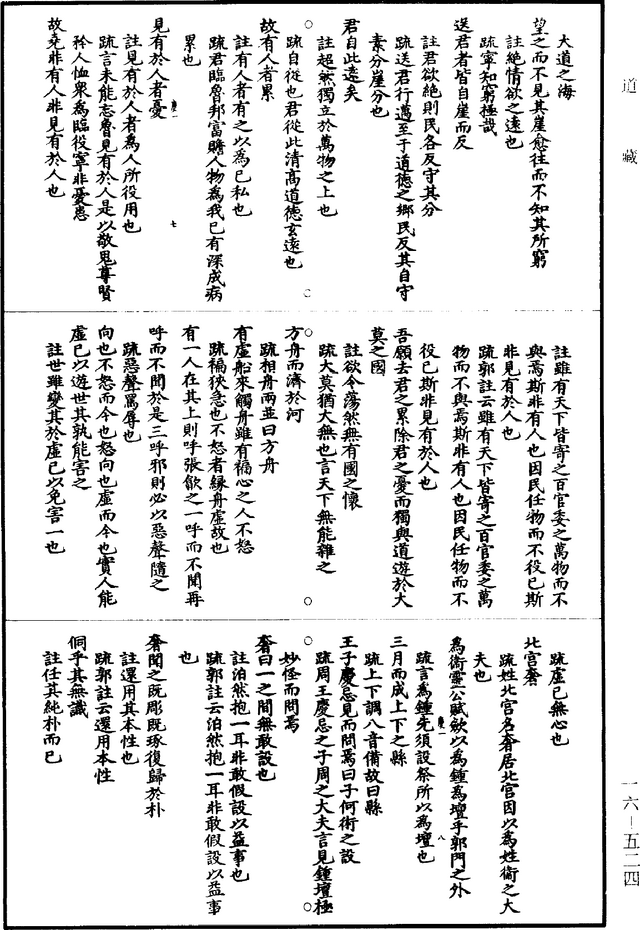 道藏
大道之海
望之而不見其崖愈往而不知其所窮
註絕情欲之遠也
疏寧知窮極哉
送君者皆自崖而反
註君欲絕則民各反守其分
疏送君行邁至于道德之鄉民反其自守
素分崖分也
君自此遠矣
註超然獨立於萬物之上也
疏自從也君從此清高道德玄遠也
故有人者累
註有人者有之以為己私也
疏君臨魯邦富贍人物為我己有深成病
累也
見有於人者憂
註見有於人者為人所役用也
疏言未能忘魯見有於人是以敬鬼尊賢
矜人恤衆為臨役寧非憂患
故堯非有人非見有於人也
七
註雖有天下皆寄之百官委之萬物而不
與焉斯非有人也因民任物而不役己斯
非見有於人也
疏郭註云雖有天下皆寄之百官委之萬
物而不與焉斯非有人也因民任物而不
役己斯非見有於人也
吾願去君之累除君之憂而獨與道遊於大
莫之國
註欲令蕩然無有國之懷
疏大莫猶大無也言天下無能雜之
方舟而濟於河
疏相舟兩並曰方舟
有虛船來觸舟雖有褊心之人不怒
疏褊狹急也不怒者緣舟虛故也
有一人在其上則呼張歙之一呼而不聞再
呼而不聞於是三呼邪則必以惡聲隨之
疏惡聲罵辱也
向也不怒而今也怒向也虛而今也實人能
虛己以遊世其孰能害之
註世雖變其於虛己以免害一也
疏虛己無心也
北宮奢
疏姓北宮名奢居北宮因以為姓衞之大
夫也
為衞靈公賦斂以為鍾為壇乎郭門之外
疏言為鍾先須設祭所以為壇也
八
三月而成上下之縣
疏上下調八音備故曰縣
王子慶忌見而問焉曰子何術之設
疏周王慶忌之子周之大夫言見鍾壇極
妙怪而問焉
奢曰一之間無敢設也
註泊然抱一耳非敢假設以益事也
疏郭註云泊然抱一耳非敢假設以益事
也
奢聞之既彫既琢復歸於朴
註還用其本性也
疏郭註云還用本性
侗乎其無識
註任其純朴而已
一六―五二四